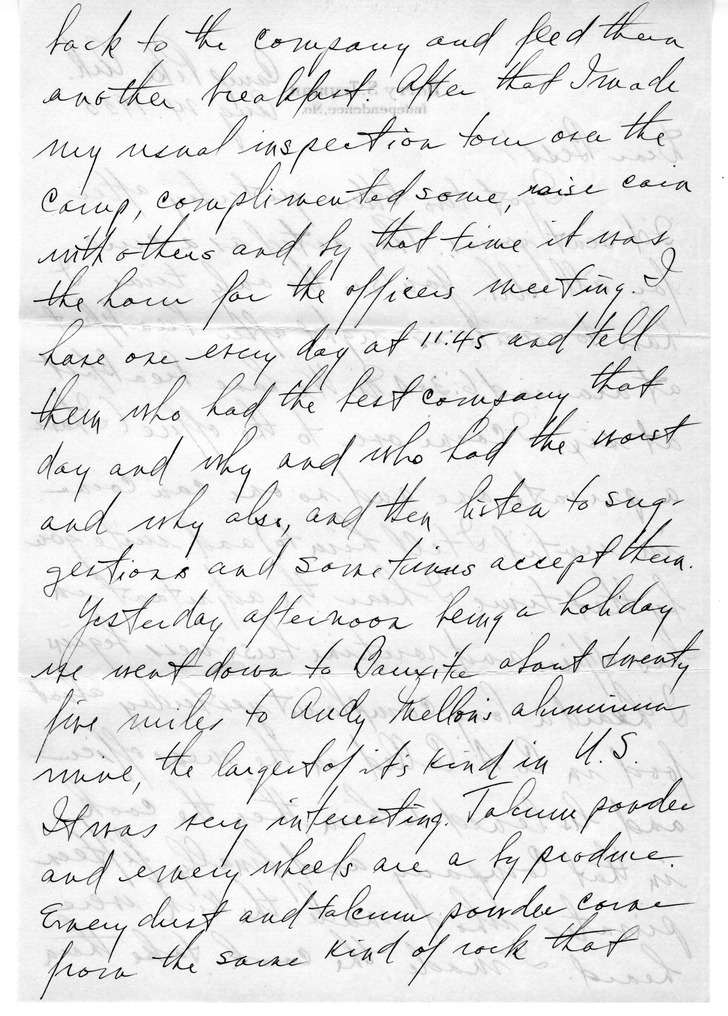 back to the company and feed them
another breakfast. After that I made
my usual inspection tour over the
camp, complimented some, raise cain
with others and by that time it was
the hour for the officers meeting. I
have one every day at 11:45 and tell
them who had the best company that
day and why and who had the worst
and why also, and then listen to sug-
gestions and sometimes accept them.
Yesterday afternoon being a holiday
we went down to Bauxite about twenty
five miles to Andy Mellon's aluminum
mine, the largest of its kind in U.S.
It was very interesting. Talcum powder
and emery wheels are a by produce.
Emery dust and talcum powder come
from the same kind of rock that